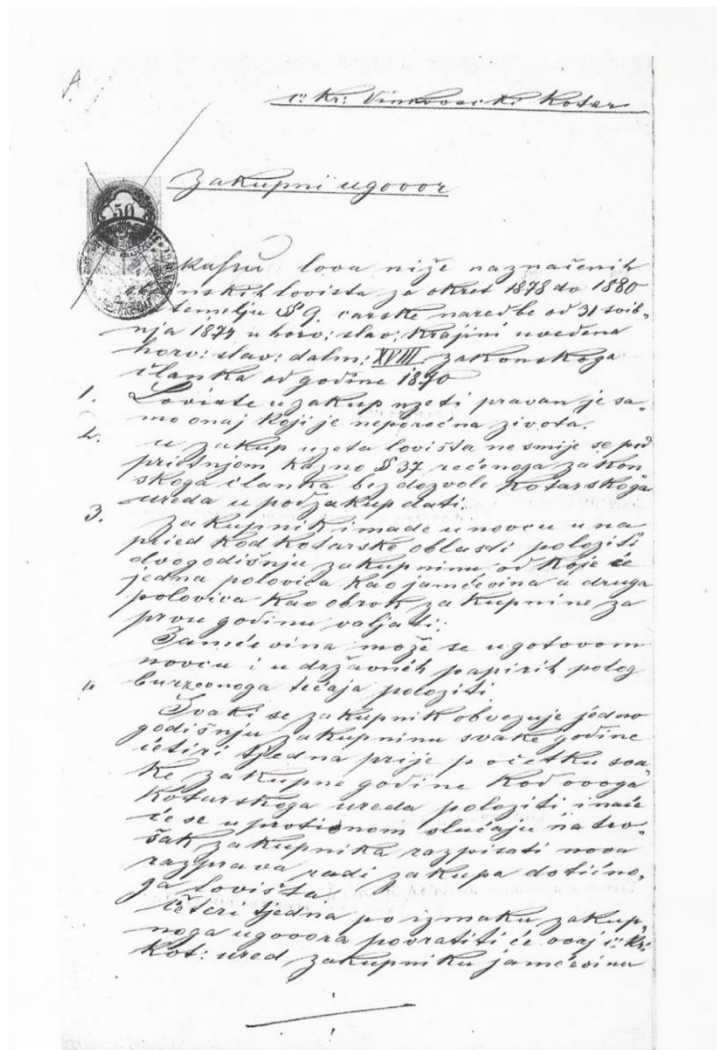 A
c: kr: Vinkovački Kotar
Zakupni ugovor
50
kasu lova niže naznačenih
inskih lovišta za okres 1878 do 1880
temelju § 9. carske naredbe od 31 svib-
nja 1877 u horv: slav: Krajini uvedena
horv: slav: dalm: XVIII. zakonskoga
članka od godine 1870
1. Lovište u zakup uzeti pravan je sa-
mo onaj koji je neporočna života.
2. U zakup uzeta lovišta ne smije se pod
prietnjom kazno § 37 rečenoga zakon
skoga članka bez dozvole Kotarskoga
ureda u podzakup dati.
3. Zakupnik imade u novcu u na
pried kod kotarske oblasti položiti
dvogodišnju zakupninu od koje će
jedna polovica kao jamčevina a druga
polovica kao obrok zakupnine za
prvu godinu valjati:
Jamčevina može se u gotovom
novcu i u državnih papirih polog
burzovnoga tečaja položiti
4. Svaki se zakupnik obvezuje jedno
godišnju zakupninu svake godine
četiri tjedna prije početku sva
ke zakupne godine kod ovoga
Kotarskoga ureda položiti inače
će se u protivnom slučaju na tro-
šak zakupnika razpisati nova
razprava radi zakupa dotično-
ga lovišta.
Četeri tjedna po izmaku zakup-
noga ugovora povratiti će ovaj c: kr:
Kot: ured zakupniku jamčevinu